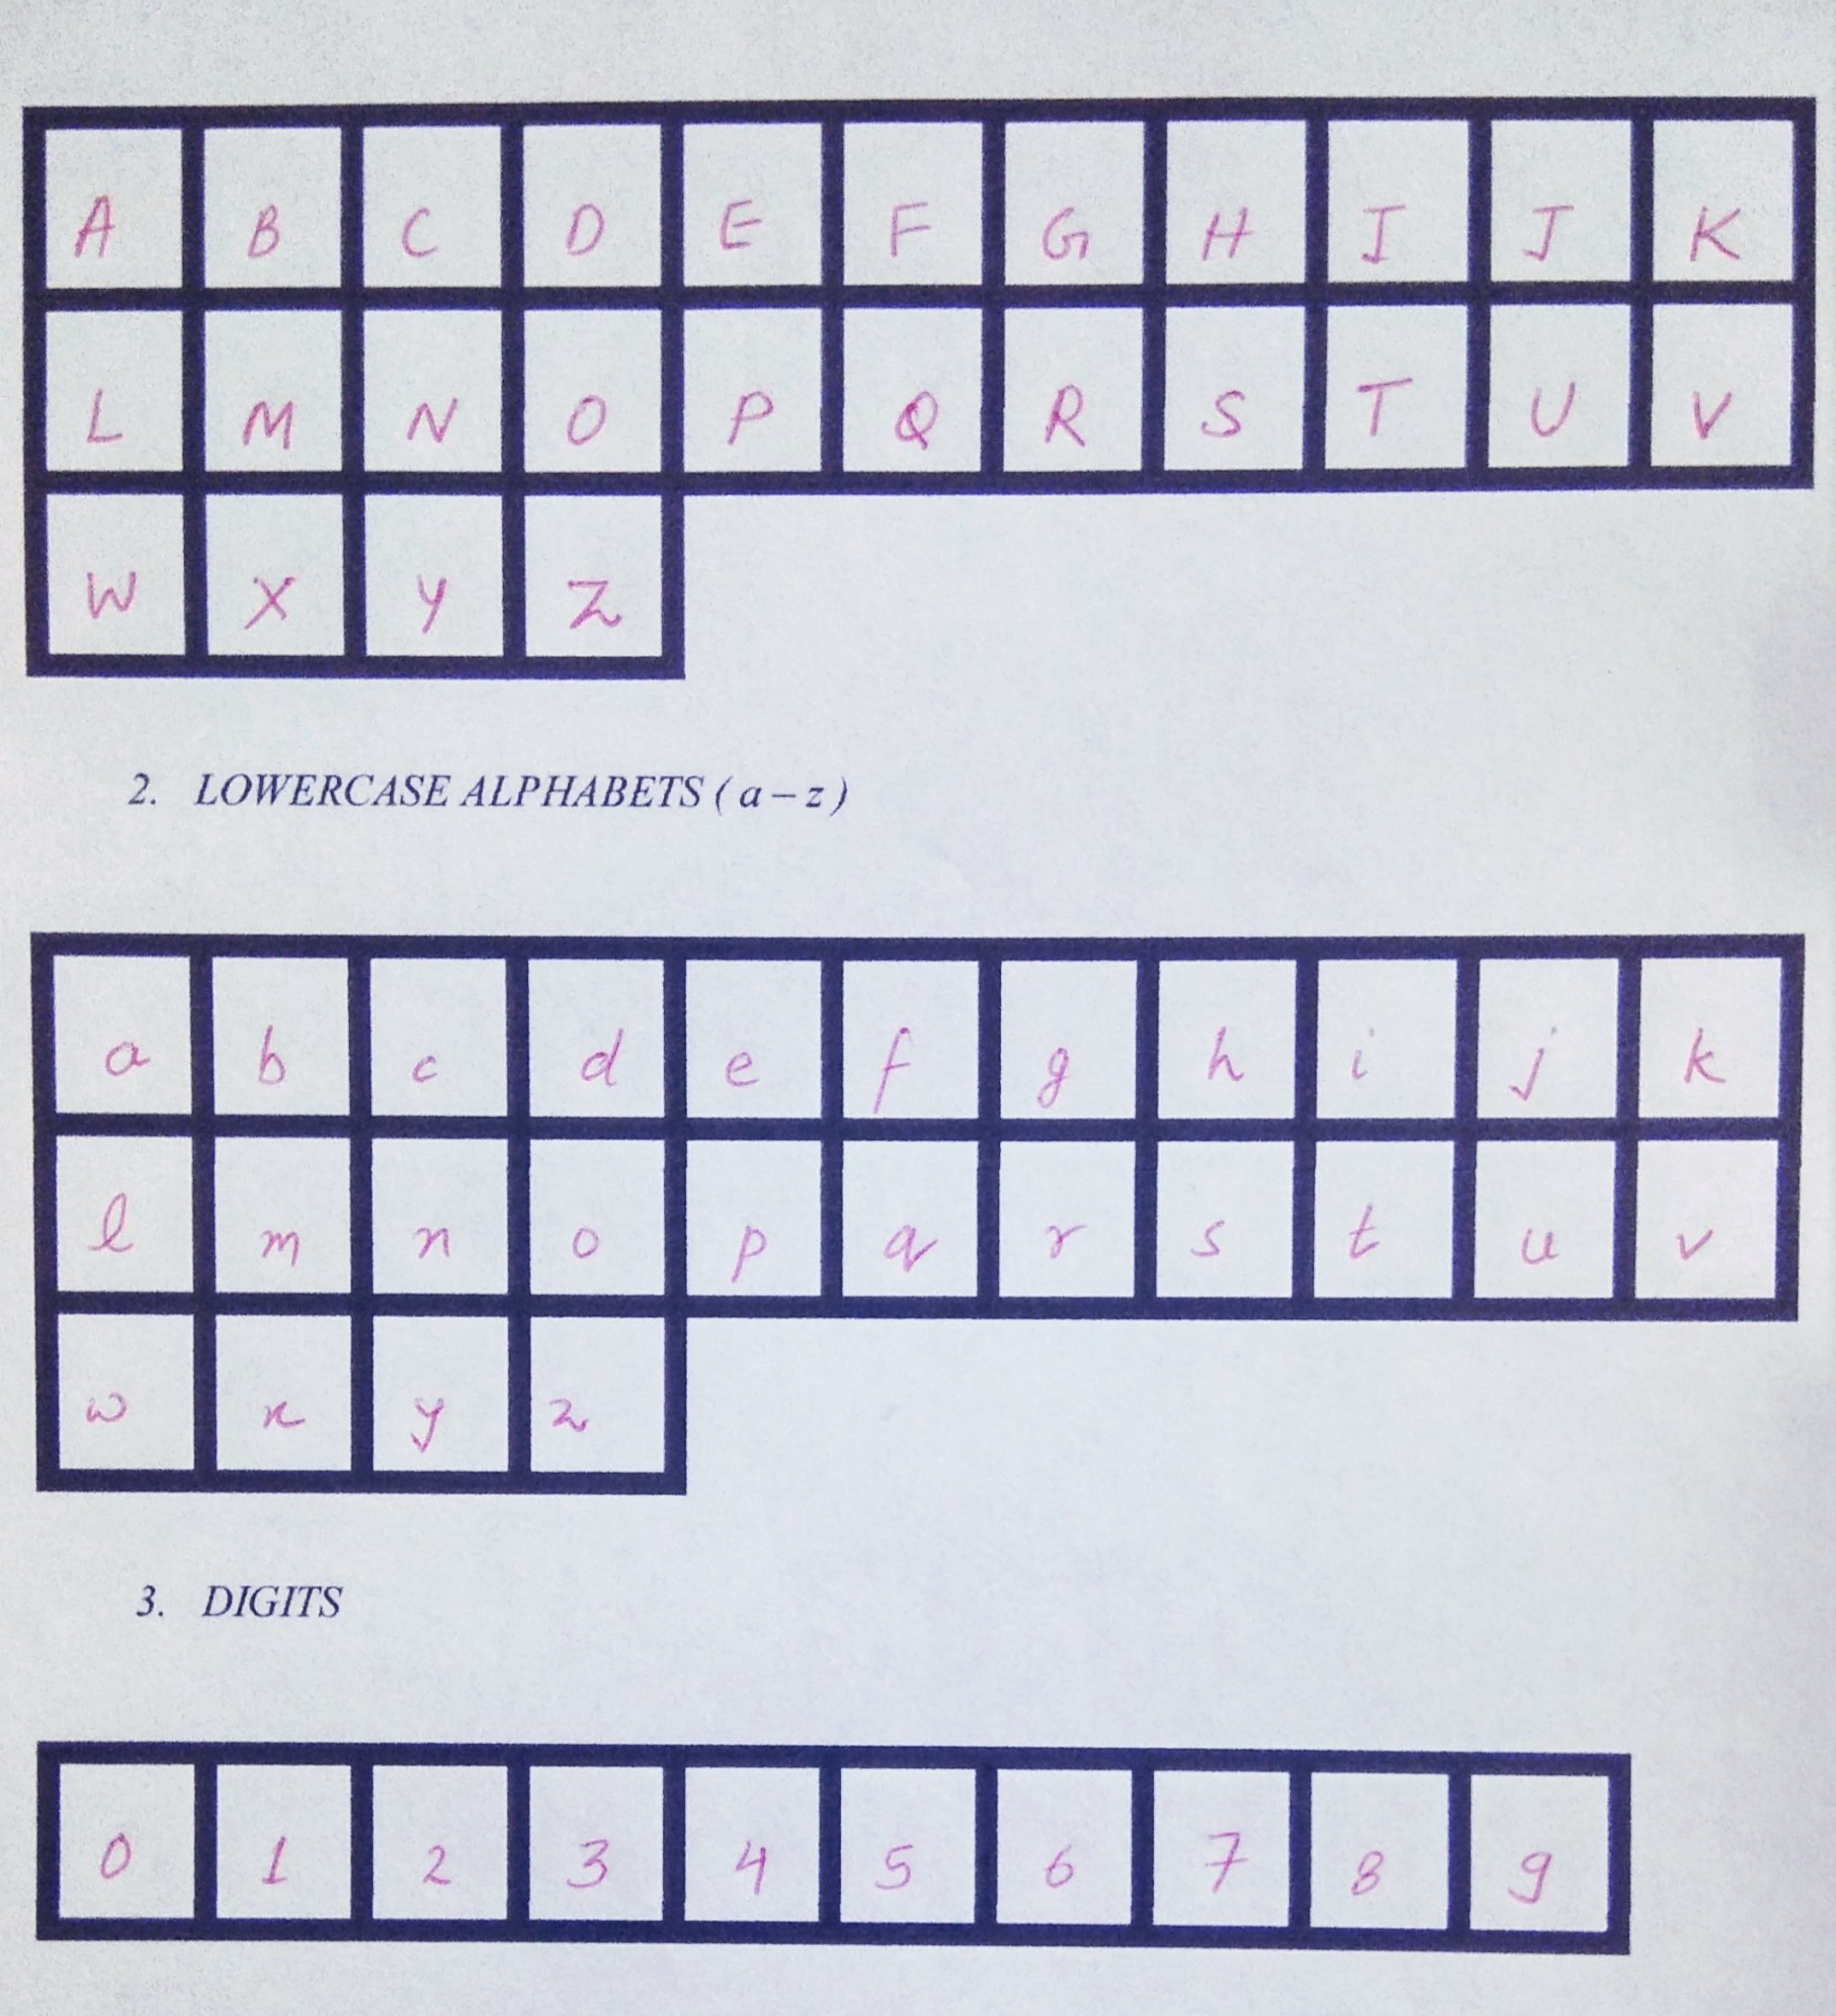 A B C D E F G H I J K
L M N O P Q R S T U V
W X Y Z
2. LOWERCASE ALPHABETS ( a – z )
a b c d e f g h i j k
l m n o p q r s t u v
w x y z
3. DIGITS
0 1 2 3 4 5 6 7 8 9